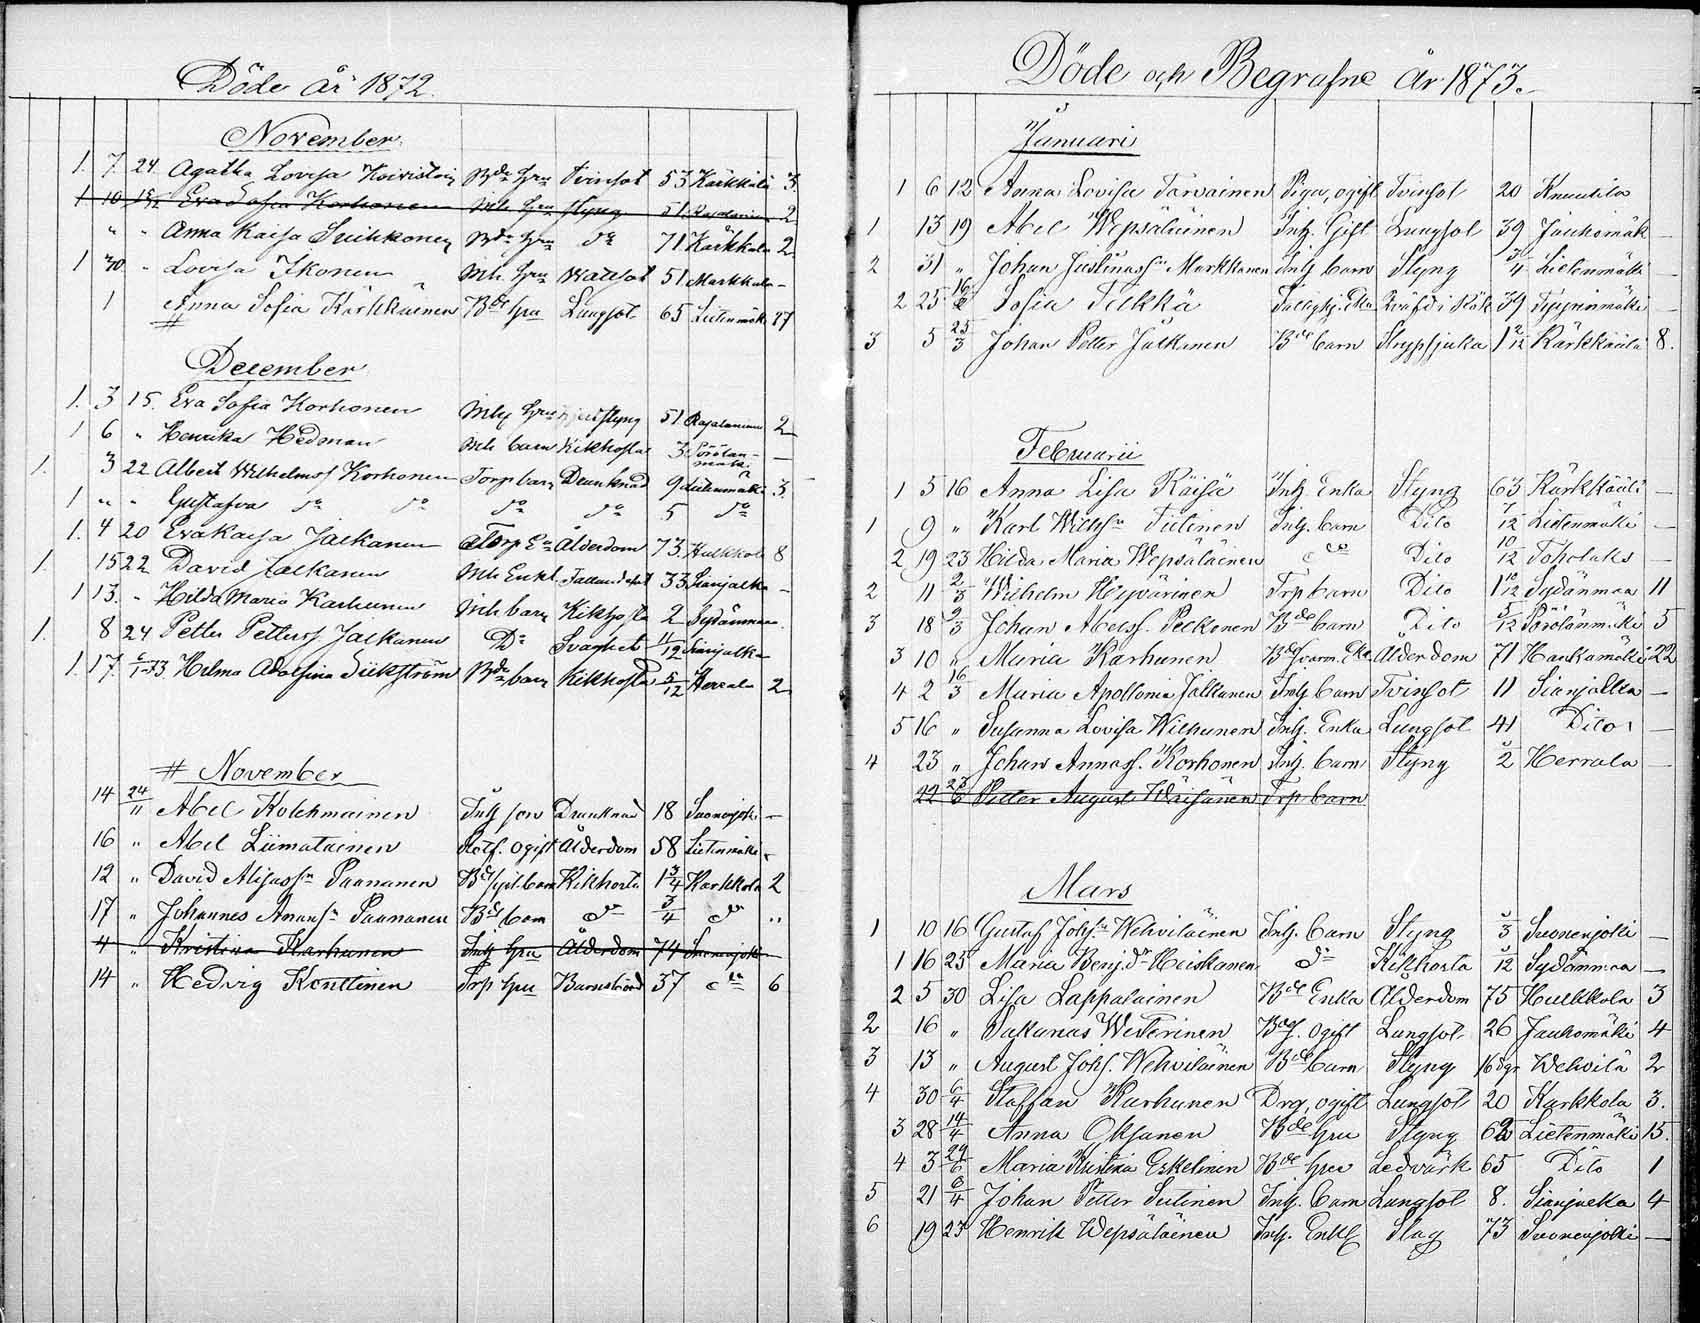 Döde år 1872.
November
1. 7. 24. Agatha Lovisa Koivistoin Bde hru Tvinsot 53 Karkkala 3.
1 10 Eva Sofia Korhonen Inh. hru styng 51 Rajalanium 2
" " Anna Kaisa Suihkonen Bde hru do 71 Karkkala 2
1 30. " Lovisa Ikonen Inh. hru Wattsot 51 Markkala -
1 Anna Sofia Kärkkäinen Bde hru Lungsot 65 Lietenmäki 27
#
December
1. 3 15. Eva Sofia Korhonen Inhy hru styng 51 Rajalanium 2
1 6 " Henrika Hedman Inh barn Kikhosta 3 Sörölän- —
mäki
1. 3 22 Albert Wilhelmss Korhonen Torp barn Drunknad 9 Lietenmäki 3.
1 " " Gustafva do do do do 5 do
1. 4 20 Eva Kaisa Jalkanen Torp Ea Ålderdom 73. Hulkkola 8
1. 15 22 David Jalkanen Inh Enkl. Fallandesot 33 Sianjalka -
1 13. " Hilda Maria Karhunen Inh barn Kikhosta 2 Sydänmaa.
1. 8 24 Petter Petterss. Jalkanen Do Svaghet 11/12 Sianjalka
1. 17. 6/1-73. Hilma Adolfina Siikström Bde barn Kikhosta 5/12 Herrala 2
# November
14 24/11 Abel Kolehmainen Inh son Drunknad 18 Suonenjoki —
16 " Abel Liimatainen Rotf. Ogift Ålderdom 58 Lietenmäki
12 " David Alijassn Paananen Kikhosta 1 3/4 Karkkola 2
17 " Johannes Ananiassn Paananen Bde barn do 3/4 do "
4 " Kristina Karhunen Inh hru Ålderdom 74 Suonenjoki —
14 " Hedvig Konttinen Trp hru Barnsbörd 37 do 6
Döde och Begrafne År 1873.
Januari
1 6 12 Anna Lovisa Tarvainen Piga, ogift Tvinsot 20 Knuutila
1 13 19 Abel Wepsäläinen Inh. Gift Lungsot 39 Jauhomäk —
2 31 " Johan Justinassn Markkanen Inh barn Styng 3/4 Lietenmäki —
2 25 16/2 Sofia Tilkkä Enka Kräfta i 39 Tyyrinmäki —
3 5 23/3 Johan Petter Jalkanen Bde barn Strypsjuka 1 2/12 Kärkkäälä 8.
Februarii
1 5 16 Anna Lisa Räisä Inh. Enka Styng 63 Kärkkääli —
1 9 " Karl Willssn Tiitinen Inh. barn Dito 7/12 Lietenmäki —
2 19 23 Hilda Maria Wepsäläinen do Dito 10/12 Toholaks —
2 11 2/3 Wilhelm Hyvärinen Trp barn Dito 1 10/12 Sydänmaa 11
3 18 9/3 Johan Abelss. Pelkonen Bde barn Dito 5/12 Sörölänmäki 5
3 10 " Maria Karhunen Ålderdom 71 Hankamäki 22
4 2 16/3 Maria Apollonia Jalkanen Inh barn Tvinsot 11 Sianjalka —
5 16 " Susanna Lovisa Wilhunen Inh. Enka Lungsot 41 Dito —
4 23 " Johan Annass. Korhonen Inh. barn Styng 2 Herrala —
22 23/6 Petter August Wäisänen Trp barn
Mars
1 10 16 Gustaf Johsn Wehviläinen Inh. barn Styng 3 Suonenjoki —
1 16 23 Maria Benj.dr Hiiskanen do Kikhosta /12 Sydänmaa —
2 5 30 Lisa Lappalainen Bde Enka Ålderdom 75 Hulkkola 3
2 16 " Sakarias Westerinen ogift Lungsot 26 Jauhomäki 4
3 13 " August Johs. Wehviläinen Bde barn Styng 16 dgr Wehvilä 2
4 30 6/4 Staffan Karhunen Drg, ogift Lungsot 20 Karkkola 3.
3 28 14/4 Anna Oksanen Bde hru Styng 62 Lietenmäki 15.
4 3 29/6 Maria Kristina Eskelinen Bde hru Ledvärk 65 Dito 1
5 21 6/4 Johan Petter Tiitinen Inh. barn Lungsot 8. Sianjalka 4
6 19 23 Henrik Wepsäläinen Inh. Enkl Slag 73 Suonenjoki —